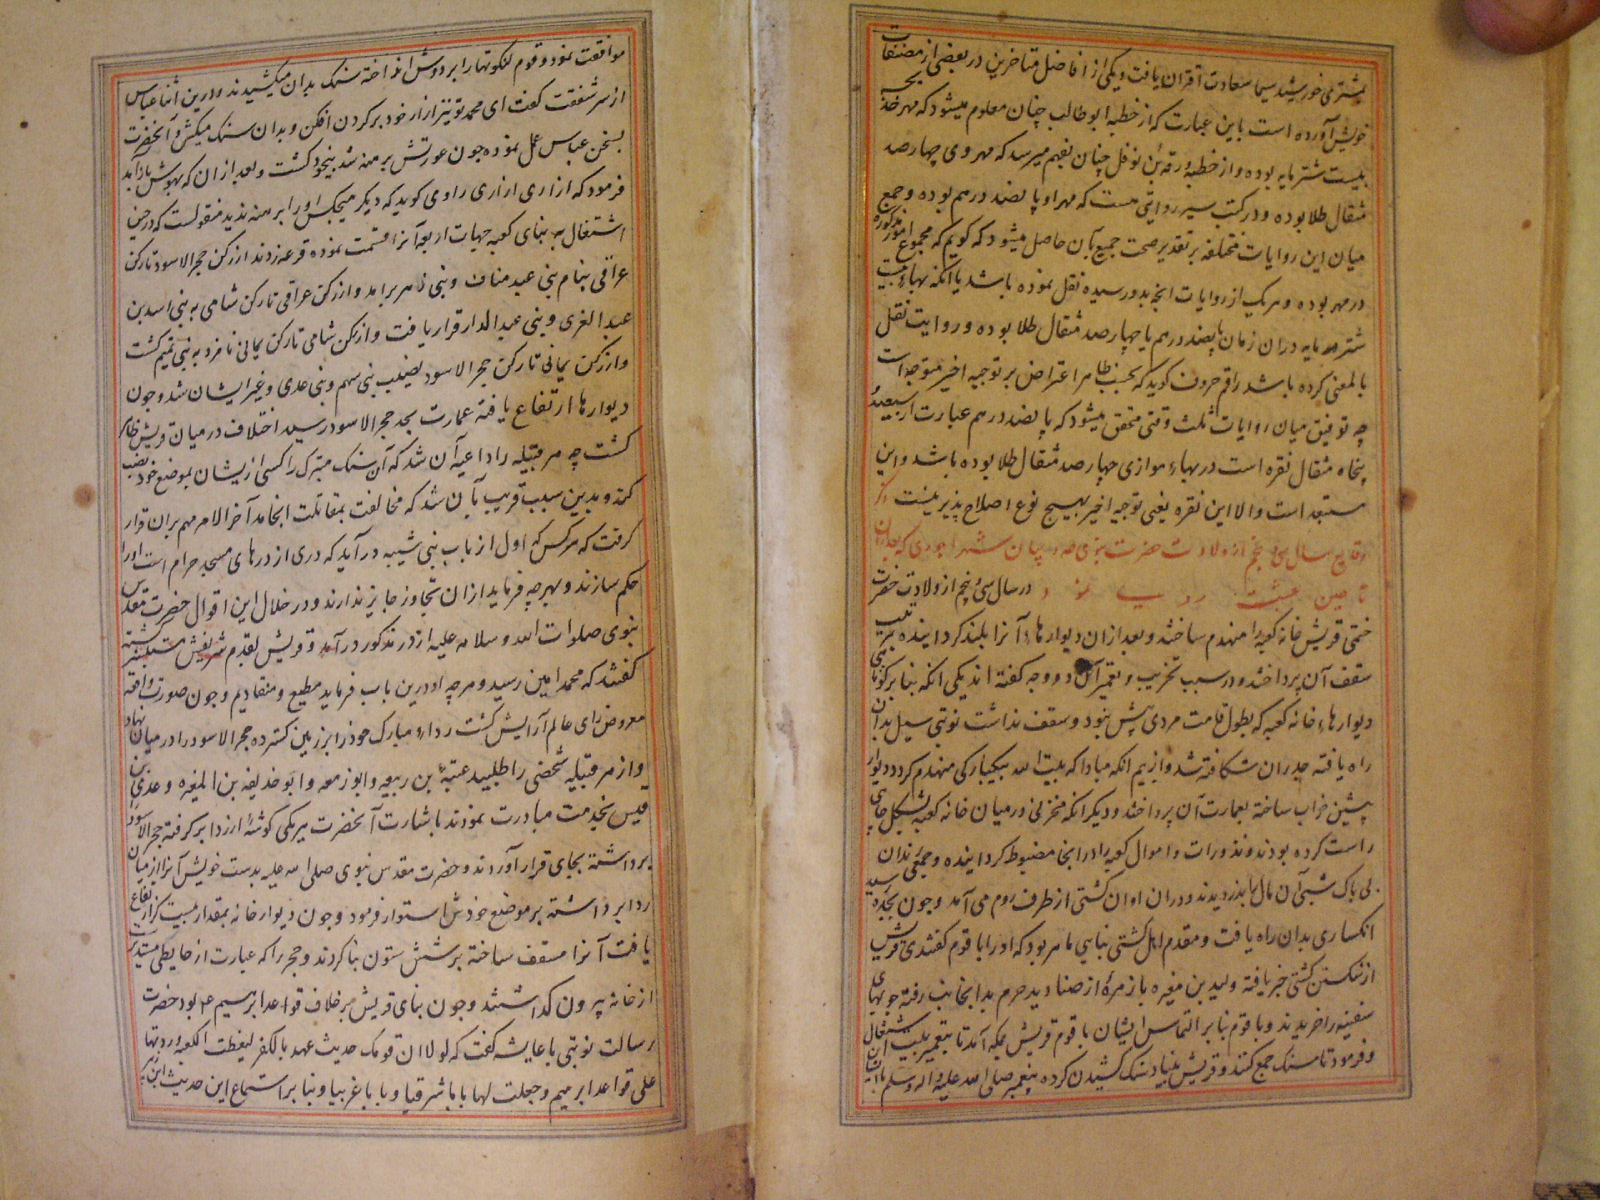 مشتری خورشید سیما سعادت اقتران یافت و یکی از افاضل متاخرین در بعضی از مصنفات
خویش آورده است باین عبارت که از خطبه ابو طالب چنان معلوم میشود که مهر خدیجه
بیست شتر مایه بوده و از خطبهٔ ورقه بن نوفل چنان بفهم میرسد که مهر وی چهار صد
مثقال طلا بوده و در کتب سیر روایتی هست که مهر او پانصد درهم بوده و جمع
میان این روایات مختلفه بر تقدیر صحت جمیع بآن حاصل میشود که گویم که مجموع امور مذکوره
در مهر بوده و هر یک از روایات انچه بدو رسیده نقل نموده باشد یا انکه بهاء بیست
شتر مایه در ان زمان پانصد درهم یا چهار صد مثقال طلا بوده و روایت نقل
بالمعنی کرده باشد راقم حروف گوید که بحسب ظاهر اعتراض بر توجیه اخیر متوجه است
چه توفیق میان روایات ثلث وقتی متحقق میشود که پانصد درهم عبارت از سیصد و
پنجاه مثقال نقره است در بهاء موازی چهار صد مثقال طلا بوده باشد و این
مستبعد است والا این نقره یعنی توجیه اخیر بهیچ نوع اصلاح پذیر نیست ذکر
وقایع سال سی و پنجم از ولادت حضرت نبوی و بیان شهر اموری که بعد از ان
تا حین بعثت روی نمود در سال سی و پنجم از ولادت حضرت
ختمی قریش خانه کعبه را منهدم ساختند و بعد از ان دیوارهاء آنرا بلند گردانیده بترتیب
سقف آن پرداختند و در سبب تخریب و تعمیر آن دو وجه گفته اند یکی انکه بنا بر کوتاهی
دیوارهاء خانه کعبه که بطول قامت مردی بیش نبود و سقف نداشت نوبتی سیل بدان
راه یافته جدران شکافته شد و از بیم انکه مبادا که بیت الله بیکبارگی منهدم گردد دیوار
پیشین خراب ساخته بعمارت آن پرداختند و دیگر انکه مخزنی در میان خانه کعبه بشکل چاهی
راست کرده بودند و نذورات و اموال کعبه را در انجا مضبوط گردانیده و جمعی رندان
بی باک شبی آن مال را بدزدیدند و در ان اوان کشتی از طرف روم می آمد و چون بجده رسید
انکساری بدان راه یافت و مقدم اهل کشتی بنایی ماهر بود که او را باقوم گفتندی قریش
از شکستن کشتی خبر یافته ولید بن مغیره با زمرهٔ از صنادید حرم بدانجانب رفته چوبهای
سفینه را خریدند و باقوم بنا بر التماس ایشان با قوم قریش بمکه آمد تا بتعمیر بیت اشتغال
و فرمود تا سنگ جمع کنند و قریش بنیاد سنگ کشیدن کرده پیغمبر صلی الله علیه و اله وسلم با ایشان
موافقت نمود و قوم لنگوتها را بر دوش انداخته سنگ بدان میکشیدند و درین اثنا عباس
از سر شفقت گفت ای محمد تو نیز ازار خود بر گردن افکن و بدان سنگ میکش و آنحضرت
بسخن عباس عمل نموده چون عورتش برهنه شد بیخود گشت و بعد از ان که بهوش باز آمد
فرمود که ازاری ازاری راوی گوید که دیگر هیچکس او را برهنه ندید منقولست که در حین
اشتغال به بنای کعبه جهات اربعه آنرا قسمت نموده قرعه زدند از رکن حجر الاسود تا رکن
عراقی بنام بنی عبد مناف و بنی زهره برامد و از رکن عراقی تا رکن شامی به بنی اسد بن
عبد العزی و بنی عبد الدار قرار یافت و از رکن شامی تا رکن یمانی نامزد به بنی تیم گشت
و از رکن یمانی تا رکن حجر الاسود نصیب بنی سهم و بنی عدی و غیر ایشان شد و چون
دیوارها ارتفاع یافته عمارت بحد حجر الاسود رسید اختلاف در میان قریش ظاهر
گشت چه هر قبیله را داعیه آن شد که آن سنگ متبرک را کسی از یشان بموضع خود نصب
کند و بدین سبب قریب بآن شد که مخالفت بمقاتلت انجامد آخر الامر مهم بران قرار
گرفت که هر کس که اول از باب بنی شیبه در آید که دری از درهای مسجد حرام است او را
حکم سازند و بهر چه فرماید ازان تجاوز جایز ندارند و در خلال این اقوال حضرت مقدس
نبوی صلوات الله و سلامه علیه از در مذکور در آمد و قریش بقدم شریفش مستبشر گشته
گفتند که محمد امین رسید و هر چه او درین باب فرماید مطیع و منقادیم و چون صورت واقعه
معروض رای عالم آرایش گشت رداء مبارک خود را بر زمین گسترده حجر الاسود را در میان نهاد
و از هر قبیله شخصی را طلبید عتبهٔ بن ربیعه و ابو زمعه و ابو حذیفه بن المغیره و عدی بن
قیس بخدمت مبادرت نمودند باشارت آنحضرت هر یکی گوشهٔ از ردا بر گرفته حجر الاسود
برداشته بجای قرار آوردند و حضرت مقدس نبوی صلی الله علیه بدست خویش آنرا از میان
ردا برداشته بر موضع خودش استوار فرمود و چون دیوار خانه بمقدار بیست گز ارتفاع
یافت آنرا مسقف ساخته بر شش ستون بنا کردند و حجر را که عبارت از حایطی مستدیر است
از خانه بیرون گذاشتند و چون بنای قریش بر خلاف قواعد ابرهیم ع بود حضرت
رسالت نوبتی با عایشه گفت که لولا ان قومک حدیث عهد بالکفر لنقضت الکعبه و رددتها
علی قواعد ابرهیم و جعلت لها بابا شرقیا و بابا غربیا و بنا بر استماع این حدیث ابن زبیر